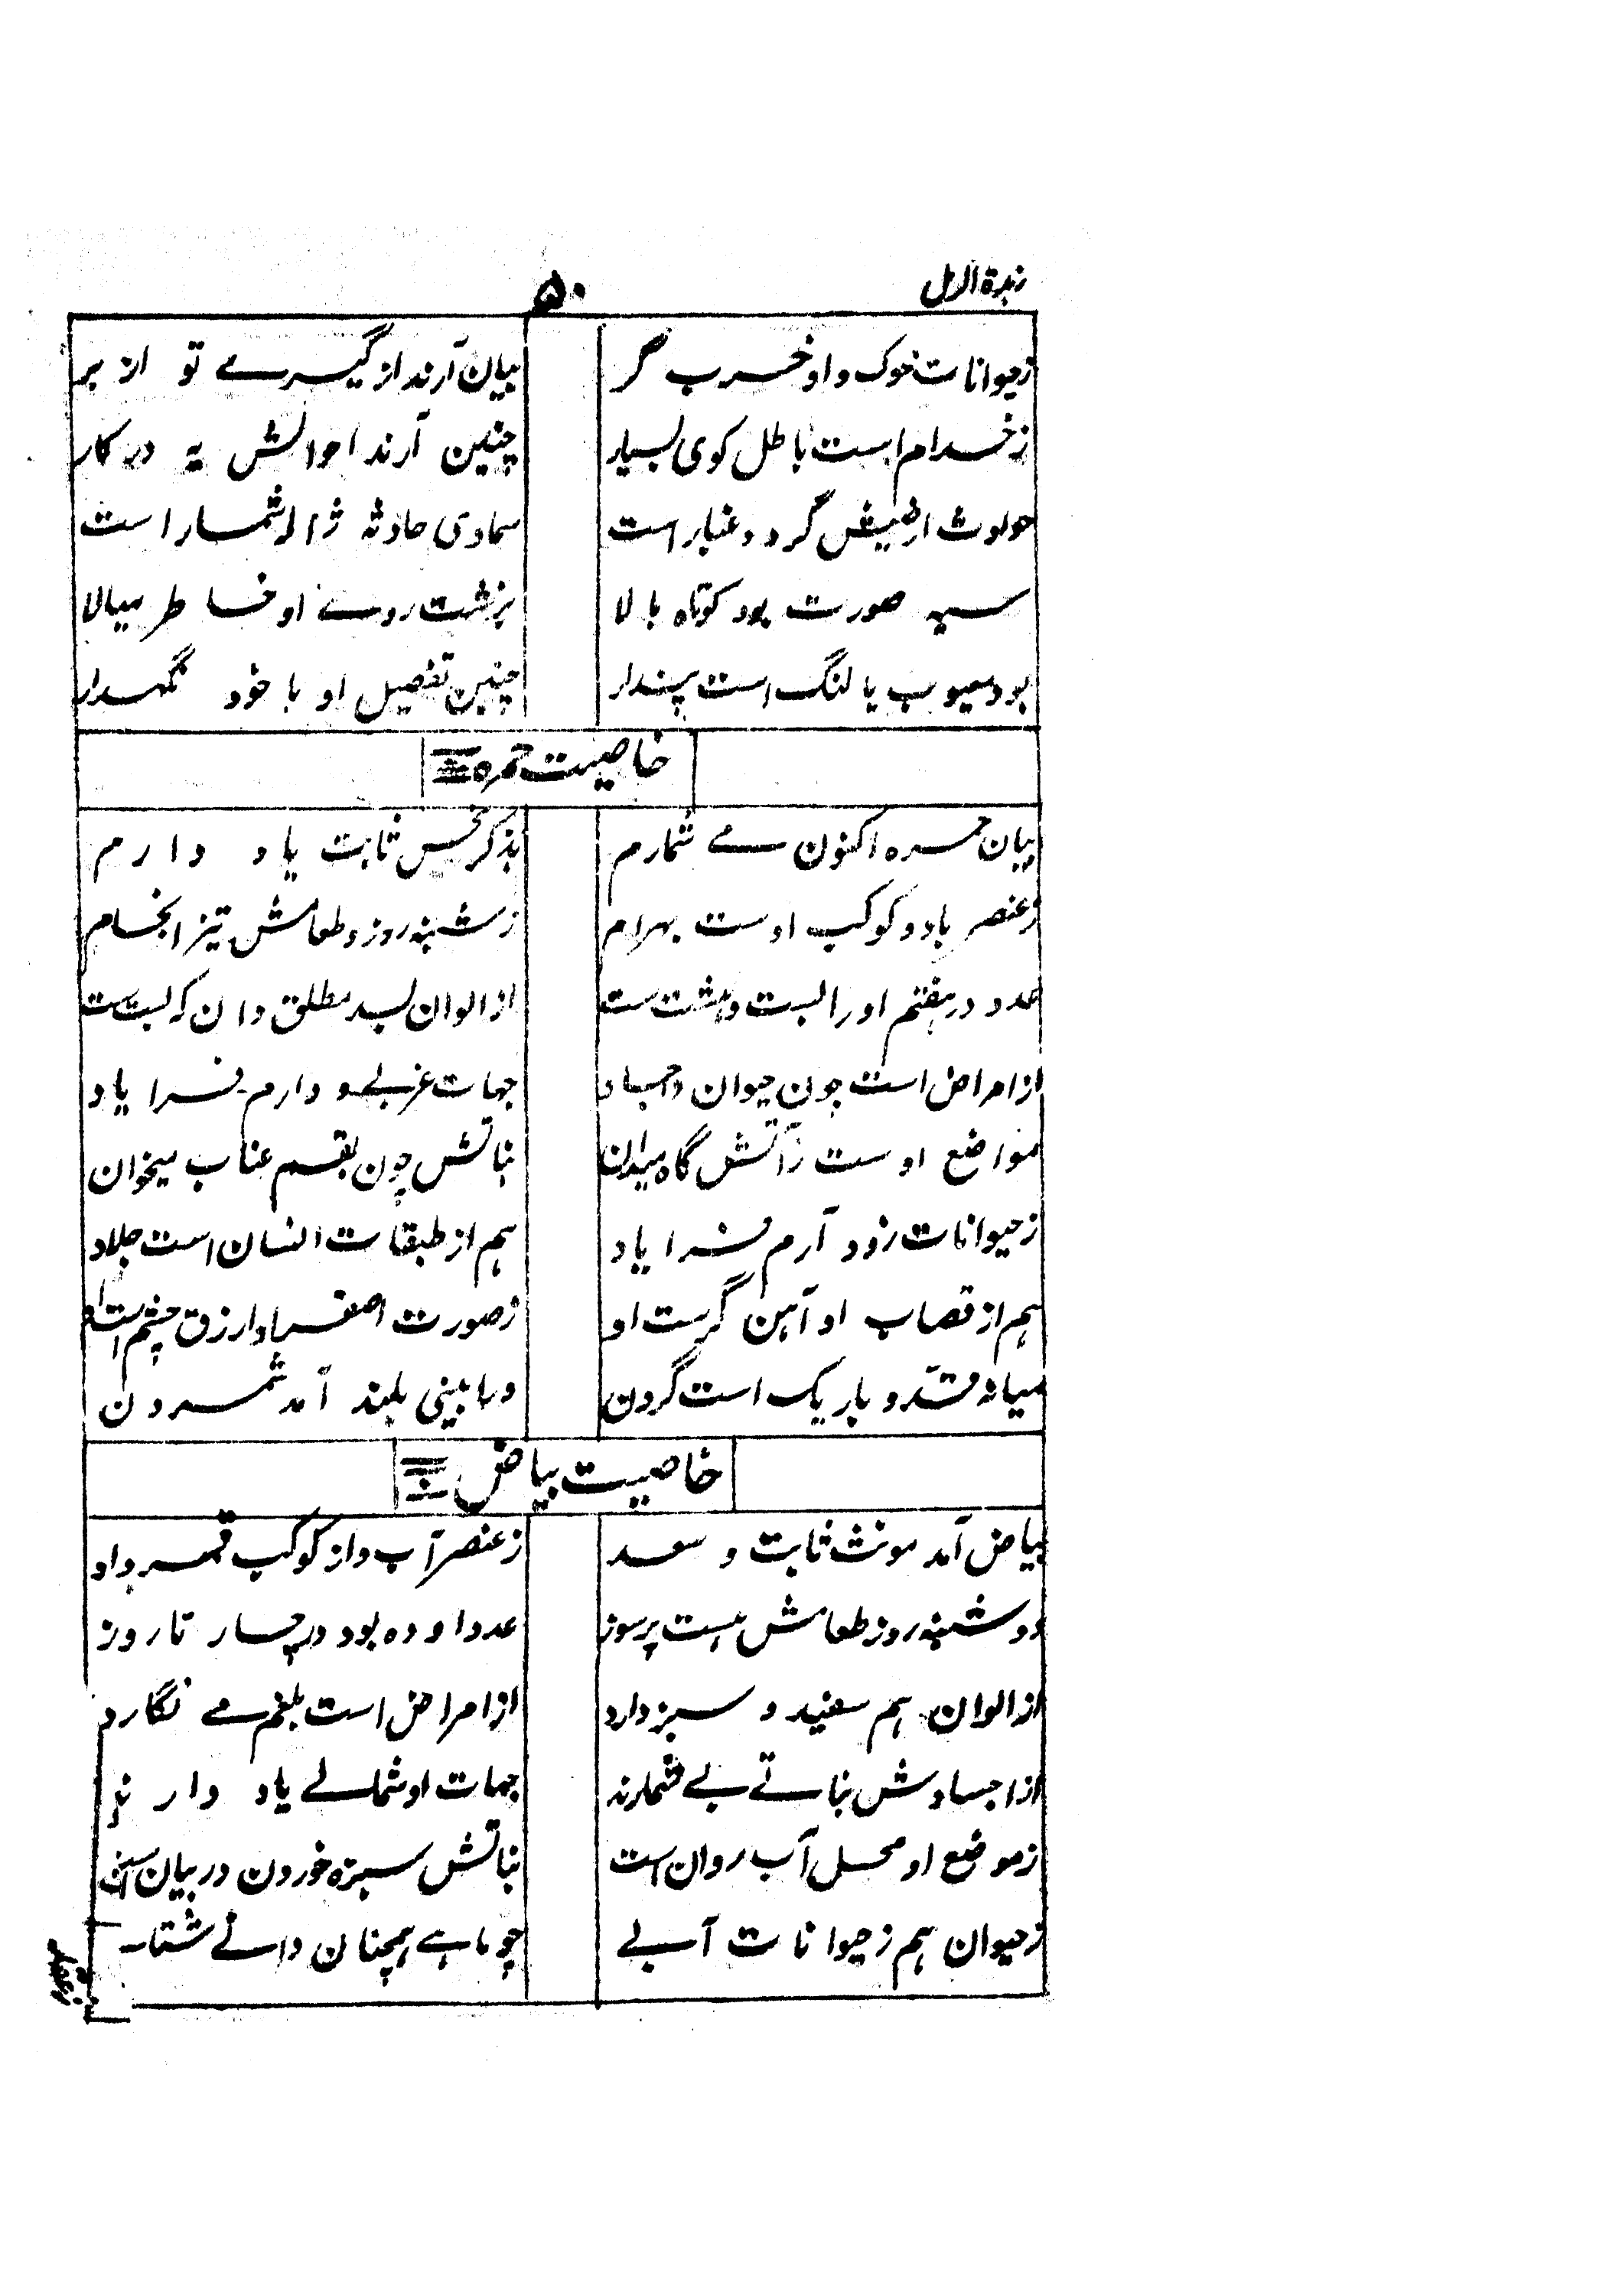 زبدة الرمل
۵۰
زحیوانات خوک و او خر بگر بیان آرند از گیرے تو از بر
زخدام است باطل کوی بسیار چنین آرند احوالش به در کار
حوادث ارضیش گرد و غبار است سماوی حادثه ژاله شمار است
سیه صورت بود کوتاه بالا بزشت روے او خاطر میالا
بود معیوب یا لنگ است پندار چنین تفصیل او با خود نگهدار
خاصیت حمره
بیان حمره اکنون مے شمارم بذکر نحس ثابت یاد دارم
زعنصر باد و کوکب اوست بهرام زشنبه روز و طعامش تیز انجام
عدد در هفتم او را بست و هشت ست از الوان مطلق دان که
از امراض است چون حیوان جهات غربی و دارم فرا یاد
مواضع اوست زآتش گاه میدان نباتش چون بقم عناب میخوان
زحیوانات زود آرم فرا یاد هم از طبقات انسان است جلاد
هم از قصاب او آهن گرست او زصورت اصفر او ازرق چشم است او
میانه قد و باریک است گردن ورا بینی بلند آمد شمردن
خاصیت بیاض
بیاض آمد مونث ثابت و سعد زعنصر آب و از کوکب قمر داد
دوشنبه روز طعامش هست پرسوز عدد او ده بود در چار تا روز
از الوان هم سفید و سبز دارد از امراض است بلغم مے نگارد
از اجسادش نباتے بے شمارند جهات او شمالے یاد دارند
زموضع او محل آب روان است نباتش سبزه خوردن در بیان است
زحیوان هم زحیوانات آبے چو ماهے همچنان دانے شتابے